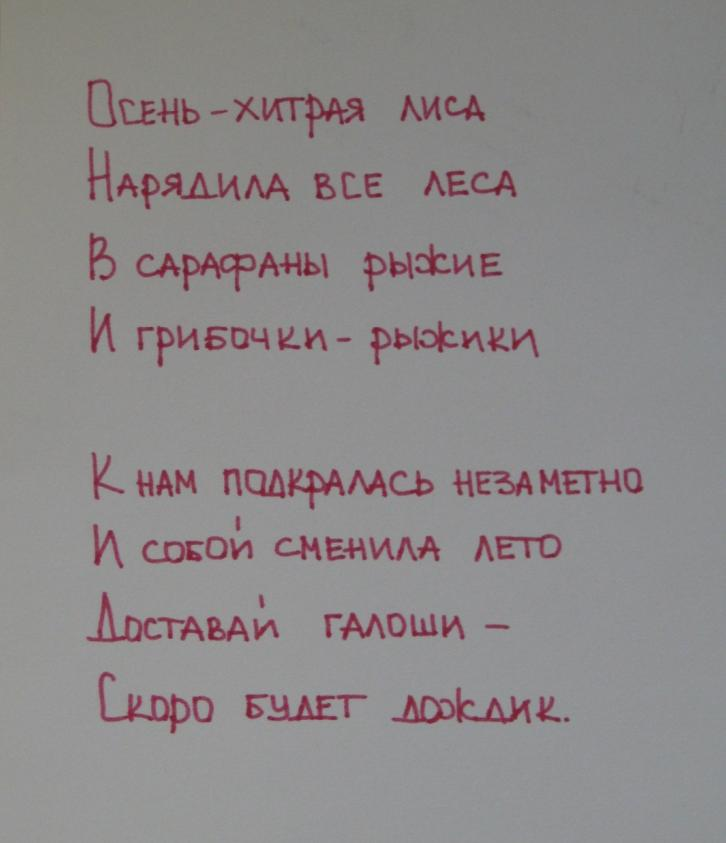 Осень-хитрая лиса
Нарядила все леса
В сарафаны рыжие
И грибочки-рыжики
К нам подкралась незаметно
И собой сменила лето
Доставай галоши -
Скоро будет дождик.